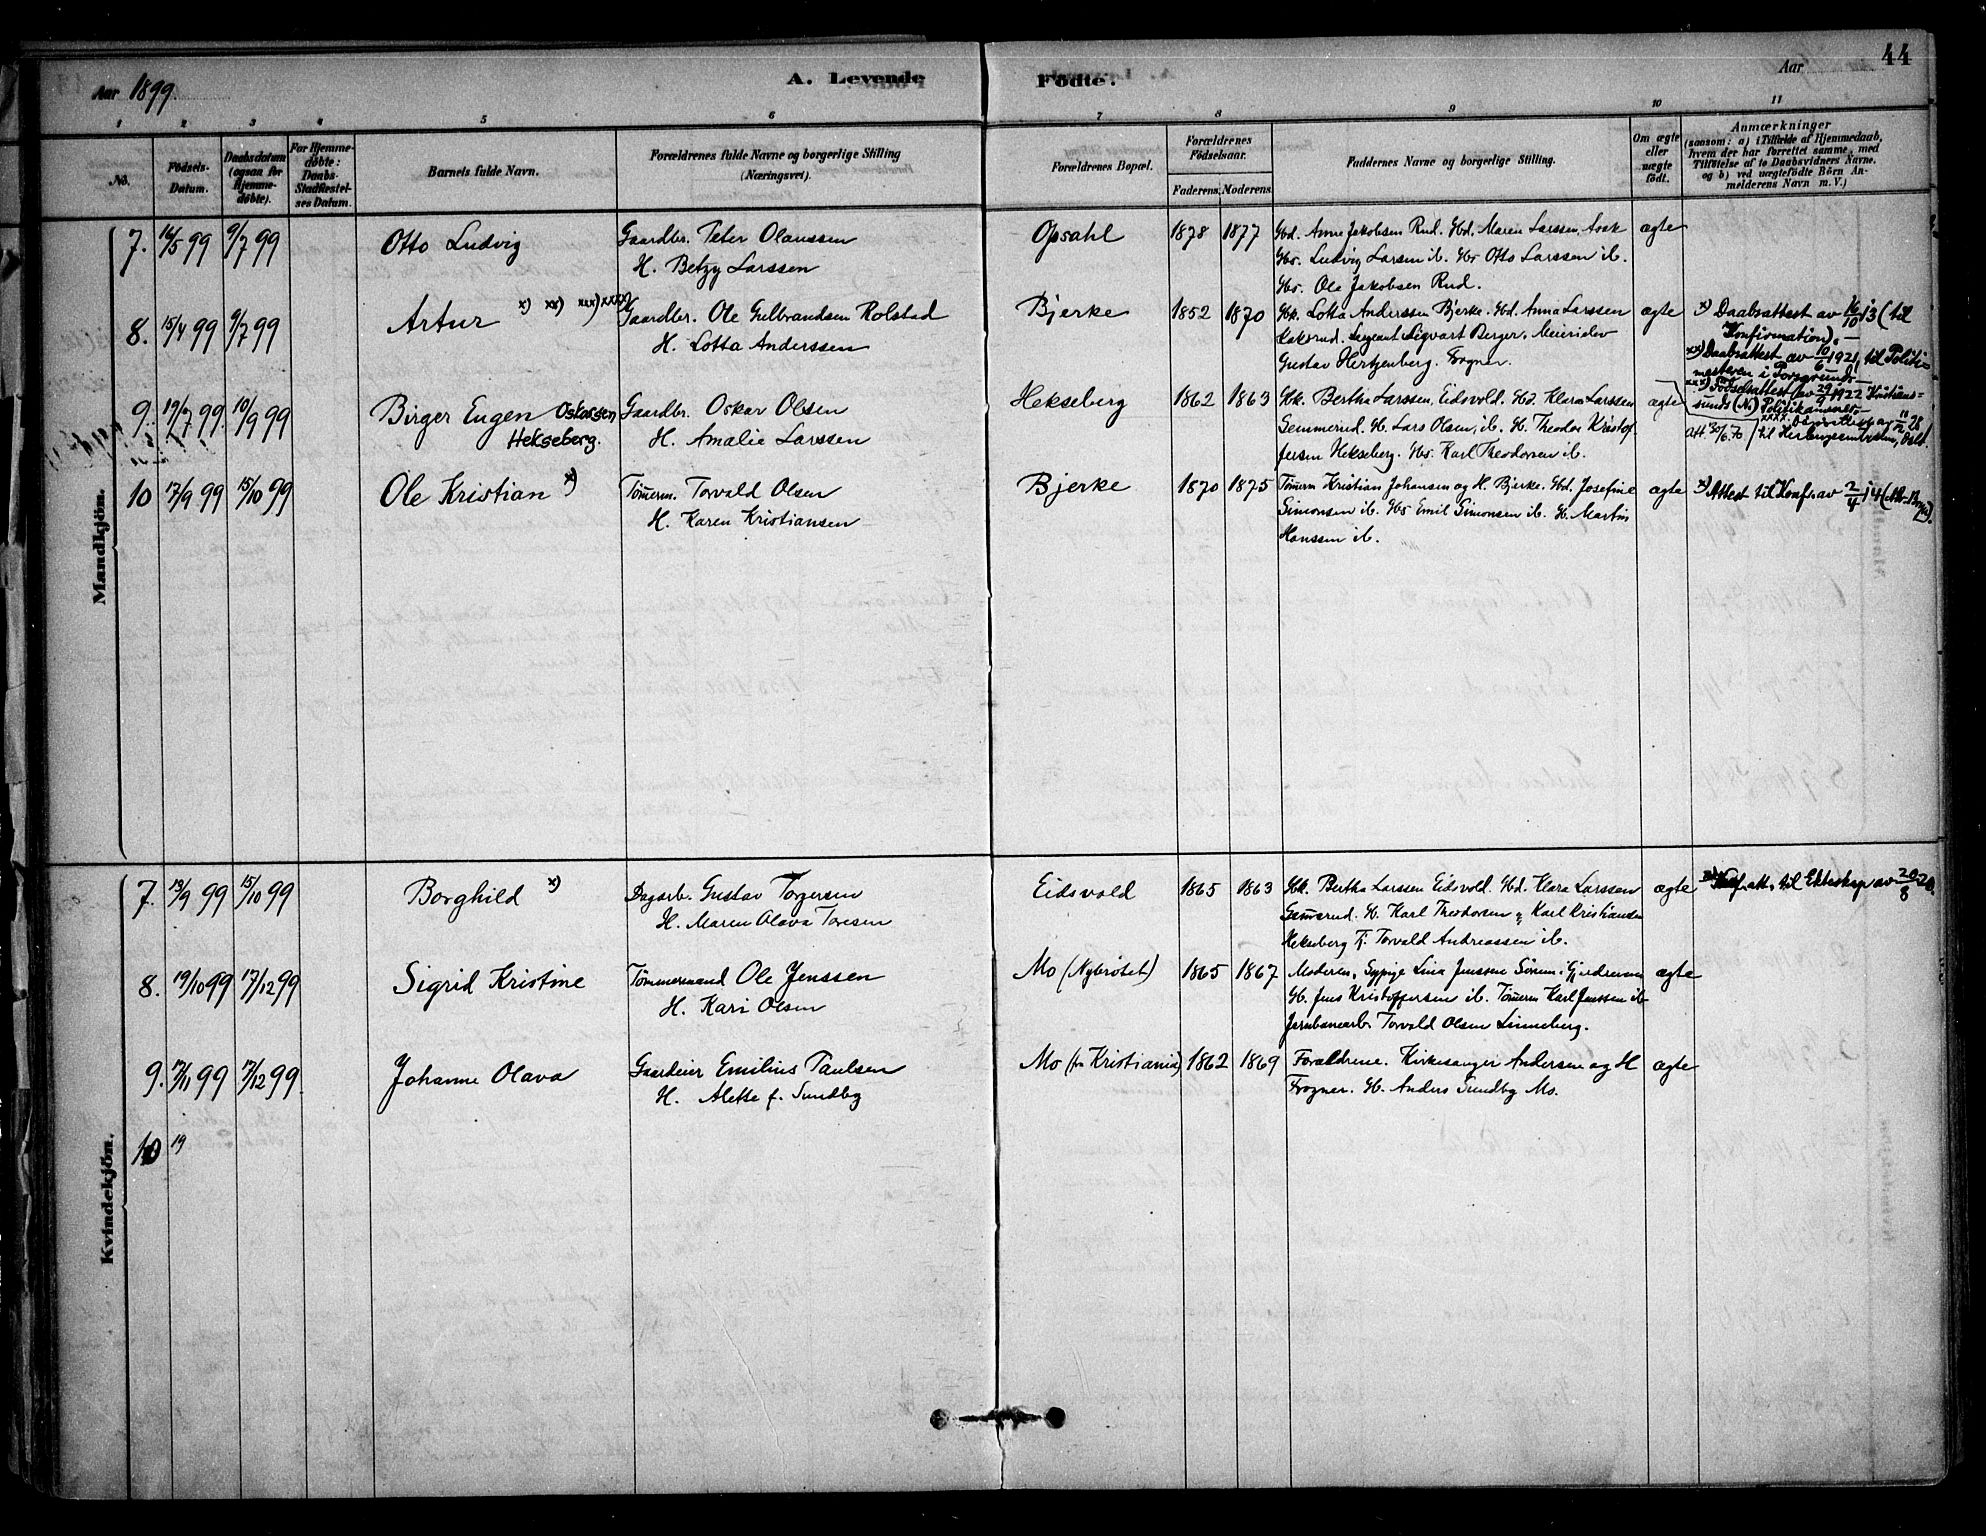 44
Aar 1899.
A. Levende Fødte.
Aar
1 2 3 4 5 6 7 8 9 10 11
No.
Fødsels-Datum.
Daabsdatum (ogsaa for Hjemmedøbte).
For Hjemmedøbte: Daabs-Stadfæstelses Datum.
Barnets fulde Navn.
Forældrenes fulde Navne og borgerlige Stilling (Næringsvei).
Forældrenes Bopæl.
Forældrenes Fødselsaar.
Faderens. Moderens.
Faddernes Navne og borgerlige Stilling.
Om ægte eller uægte født.
Anmærkninger
(saasom: a) i Tilfælde af Hjemmedaab, hvem der har forrettet samme, med Tilføielse af to Daabsvidners Navne, og b) ved uægtefødte Børn Anmelderens Navn m. V.)
Mandkjøn.
7. 16/5 99 9/7 99 Otto Ludvig Gaardbr. Peter Olaussen Opsahl 1878 1877 Gbd. Anne Jakobsen Rud. Gbd. Maren Larssen, Aask ægte
H. Betzy Larssen Gbs. Ludvig Larsen ib. Gbs Otto Larssen ib.
Gbs. Ole Jakobsen Rud.
8. 15/4 99 9/7 99 Artur x) xx) xxx) xxxx) Gaardbr. Ole Gulbrandsen Rolstad Bjerke 1852 1870 Gbk. Lotta Anderssen Bjerke. Gbd. Anna Larssen ægte x) Daabsattest av 16/10 13 (til
H. Lotta Anderssen Sergeant Sigvart Berger. Meierielev Konfirmation). —
Gustav Hertzenberg. Frogner. xx) Daabsattest av 10/6 1921, til Politimesteren i Porsgrund —
9. 19/7 99 10/9 99 Birger Eugen Oskarsen Gaardbr. Oskar Olsen Hekseberg 1862 1863 Gbk. Bertha Larssen, Eidsvold. Gbd. Klara Larssen ægte xxx) Fødselsattest av 29/7 1922 Kristiansunds (N) Politikammer —
Hekseberg. H. Amalie Larssen Gemmerud. G. Lars Olsen, ib. G. Theodor Kristoffersen Hekseberg. Gbs. Karl Theodorsen ib. Att. 30/6.70
10 17/9 99 15/10 99 Ole Kristian x) Tømerm. Torvald Olsen Bjerke 1870 1875 Tømerm Kristian Johansen og H. Bjerke. Gbd. Josefine ægte x) Attest til Konf. av 2/4 14
H. Karen Kristiansen Simonsen ib. Gbs Emil Simonsen ib. G. Martin
Hanssen ib.
Kvindekjøn.
7. 13/9 99 15/10 99 Borghild x) Dagarb. Gustav Torgersen Eidsvold 1865 1863 Gbk. Bertha Larssen Eidsvold. Gbd. Klara Larssen ægte x) att. til Ekteskap av 20/8 20.
H. Maren Olava Toresen Gemsrud. G. Karl Theodorsen Karl Kristiansen
Hekseberg Tj. Torvald Andreassen ib.
8. 19/10 99 17/12 99 Sigrid Kristine Tømmermand Ole Jenssen Mo (Nybrøtet) 1865 1867 Moderen, Sypige Lina Jenssen Sørum i Gjerdrum ægte
H. Kari Olsen G. Jens Kristoffersen ib. Tømerm Karl Jenssen ib
Jernbanearb. Torvald Olsen Linneberg.
9. 17/11 99 17/12 99 Johanne Olava Gaardeier Emilius Paulsen Mo (fra Kristiania) 1862 1869 Forældrene. Kirkesanger Andersen og H ægte
H. Alette f. Sundby Frogner. G. Anders Sundby Mo.
10 19